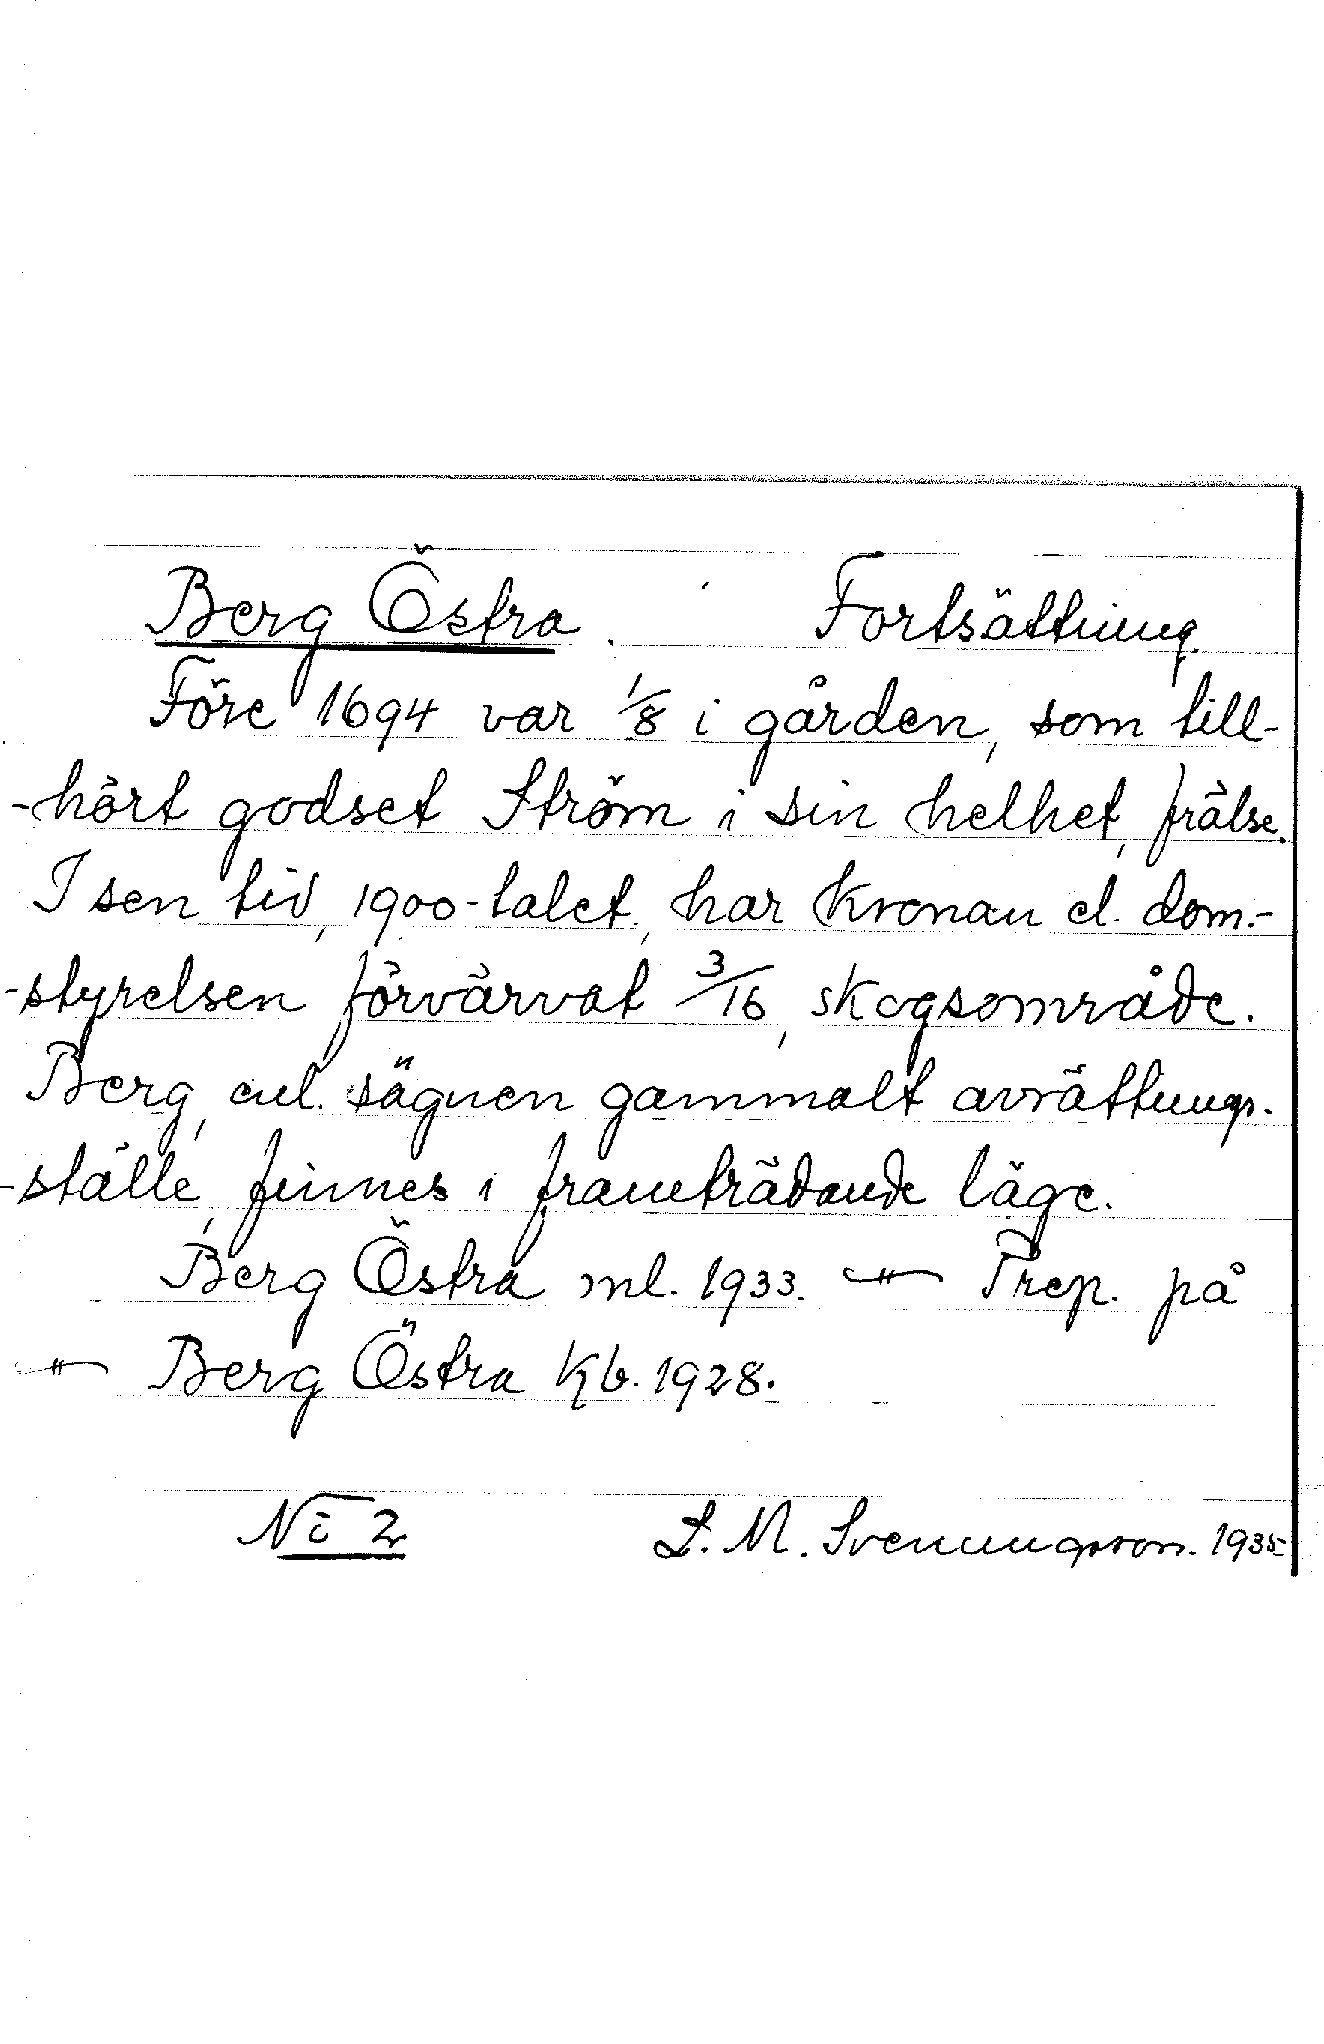 Berg Östra. Fortsättning.
Före 1694 var 1/8 i gården, som till-
-hört godset Ström i sin helhet, frälse.
I sen tid, 1900-talet, har Kronan el. dom.-
-styrelsen förvärvat 3/16, skogsområde.
Berg, enl. sägnen gammalt avrättnings-
-ställe, finnes i framträdande läge.
Berg Östra ml. 1933. —"— Prep. på
—"— Berg Östra Kb. 1928.
No 2 L. M. Svenungsson. 1935